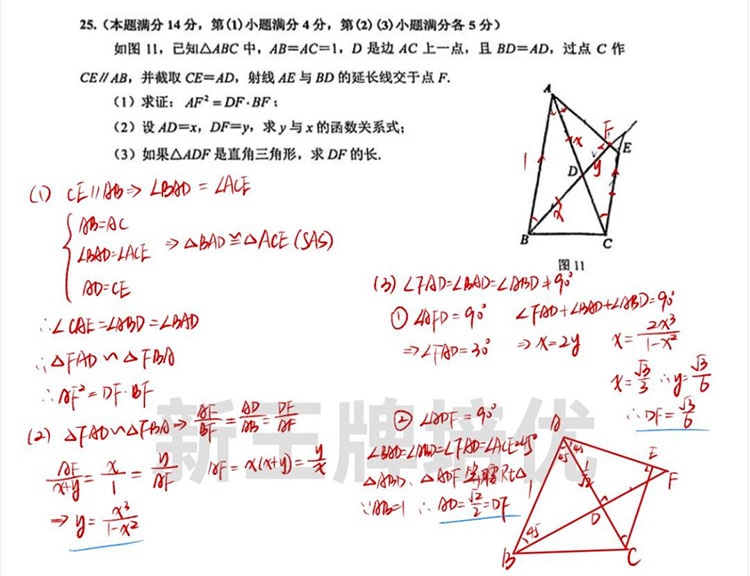 25.（本题满分 14 分，第(1)小题满分 4 分，第(2)(3)小题满分各 5 分）
如图 11，已知△ABC 中，AB=AC=1，D 是边 AC 上一点，且 BD=AD，过点 C 作
CE∥AB，并截取 CE=AD，射线 AE 与 BD 的延长线交于点 F.
（1）求证：AF²=DF·BF；
（2）设 AD=x，DF=y，求 y 与 x 的函数关系式；
（3）如果△ADF 是直角三角形，求 DF 的长.
A
F
E
1
x
D
y
x
B
C
图 11
(1) CE∥AB⇒∠BAD=∠ACE
AB=AC
∠BAD=∠ACE ⇒ △BAD≌△ACE (SAS)
AD=CE
∴∠CAE=∠ABD=∠BAD
∴△FAD∽△FBA
∴AF²=DF·BF
(2) △FAD∽△FBA⇒ AF/BF=AD/AB=DF/AF
AF/(x+y)=x/1=y/AF AF=x(x+y)=y/x
⇒ y=x³/(1-x²)
(3) ∠FAD=∠BAD=∠ABD≠90°
① ∠AFD=90° ∠FAD+∠BAD+∠ABD=90°
⇒∠FAD=30° ⇒x=2y x=2x³/(1-x²)
x=√3/3 ∴y=√3/6
∴DF=√3/6
② ∠ADF=90°
∠BAD=∠ABD=∠FAD=∠ACE=45°
△ABD、△ADF 等腰Rt△
∵AB=1 ∴AD=√2/2=DF
A
45
45
E
F
1
D
45
B
C
新王牌培优